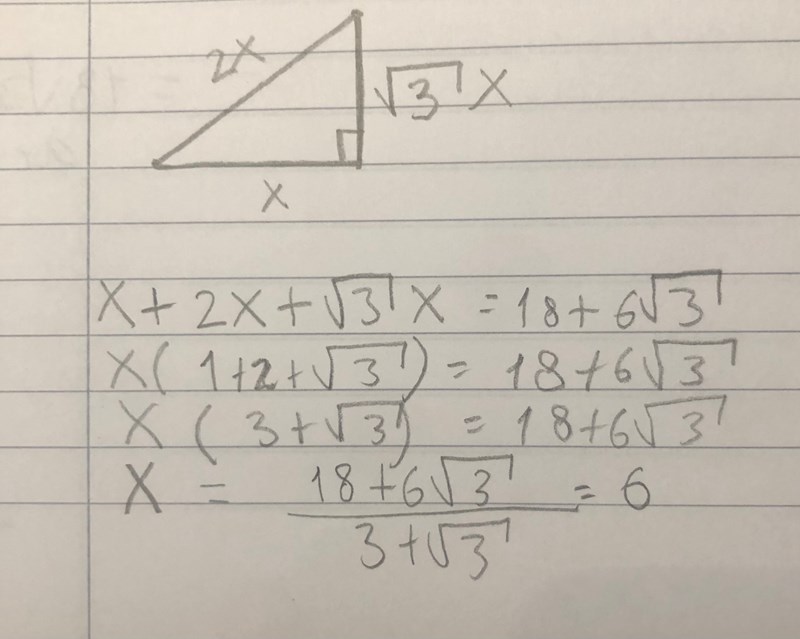 2x
√3 x
x
x + 2x + √3 x = 18 + 6√3
x( 1+2+√3 ) = 18+6√3
x ( 3+√3 ) = 18+6√3
x = (18+6√3)/(3+√3) = 6